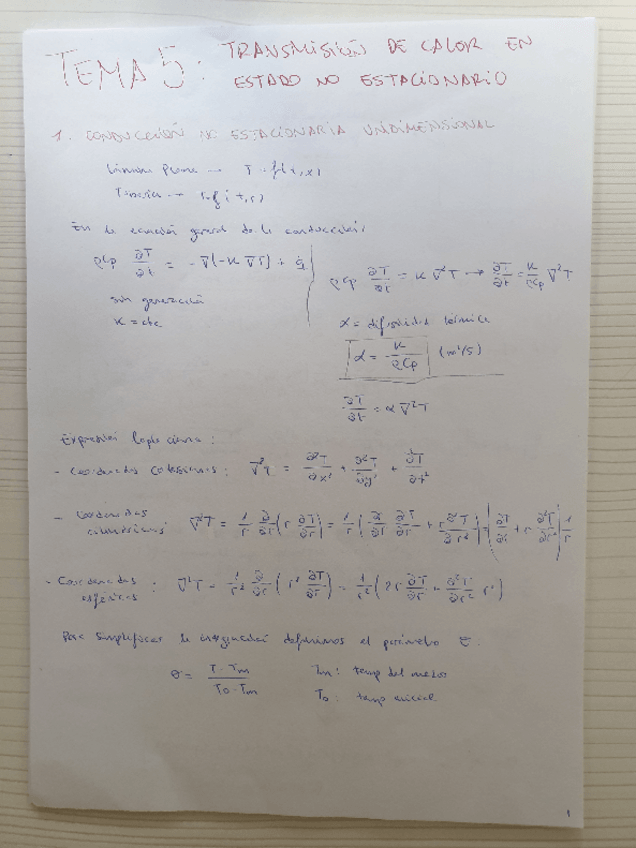 TEMA 5: TRANSMISIÓN DE CALOR EN
ESTADO NO ESTACIONARIO
1. CONDUCCIÓN NO ESTACIONARIA UNIDIMENSIONAL
Lámina plana → T = f(t, x)
→ T = f(t, r)
En la ecuación general de la conducción:
ρCp ∂T/∂t = -∇(-K ∇T) + q̇
sin generación
K = cte
ρCp ∂T/∂t = K ∇²T → ∂T/∂t = K/ρCp ∇²T
α = difusividad térmica
α = K/ρCp (m²/s)
∂T/∂t = α ∇²T
Expresión laplaciana:
- Coordenadas cartesianas: ∇²T = ∂²T/∂x² + ∂²T/∂y² + ∂²T/∂z²
- Coordenadas
cilíndricas: ∇²T = 1/r ∂/∂r (r ∂T/∂r) = 1/r (∂r/∂r ∂T/∂r + r ∂²T/∂r²) = (∂T/∂r + r ∂²T/∂r²) 1/r
- Coordenadas
esféricas: ∇²T = 1/r² ∂/∂r (r² ∂T/∂r) = 1/r² (2r ∂T/∂r + ∂²T/∂r² r²)
Para simplificar la integración definimos el parámetro
θ = T - Tm / T0 - Tm
Tm: temp del medio
T0: temp inicial
1